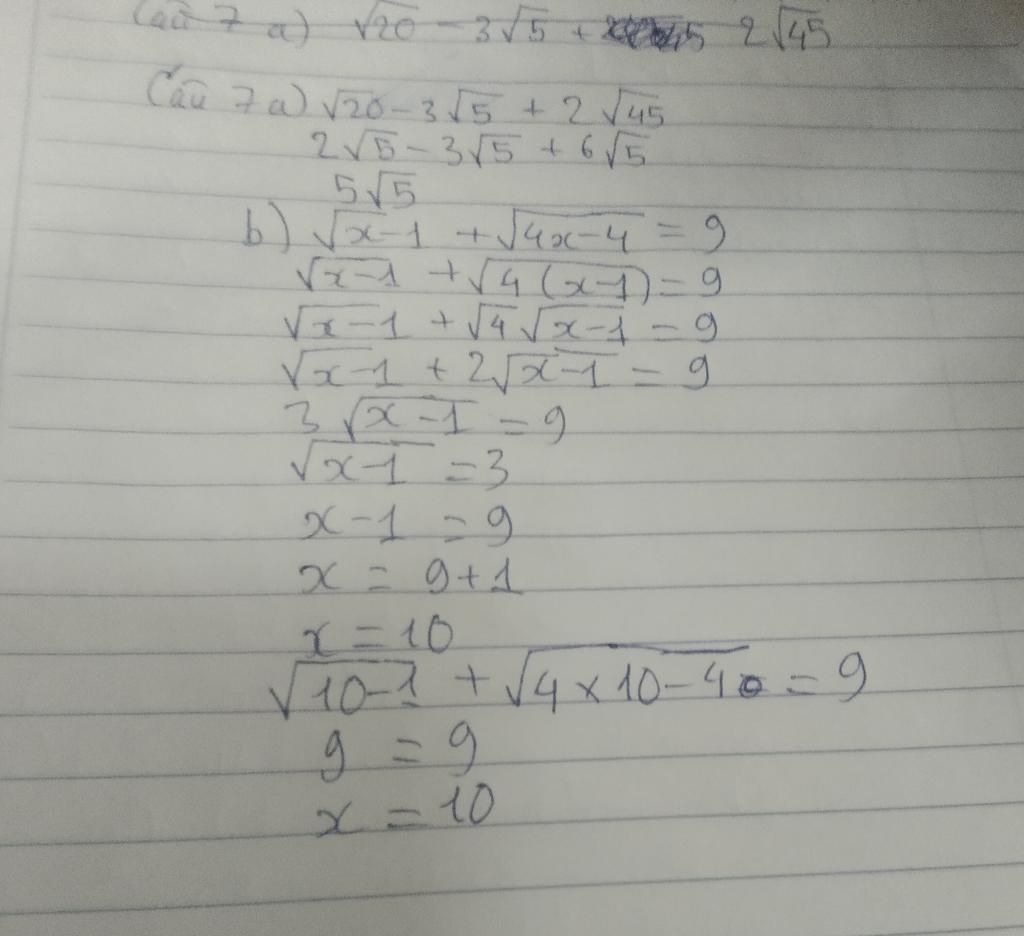 Câu 7 a) √20 - 3√5 + 2√45
Câu 7a) √20 - 3√5 + 2√45
2√5 - 3√5 + 6√5
5√5
b) √x-1 + √4x-4 = 9
√x-1 + √4(x-1) = 9
√x-1 + √4√x-1 = 9
√x-1 + 2√x-1 = 9
3√x-1 = 9
√x-1 = 3
x-1 = 9
x = 9+1
x = 10
√10-1 + √4×10-4 = 9
9 = 9
x = 10